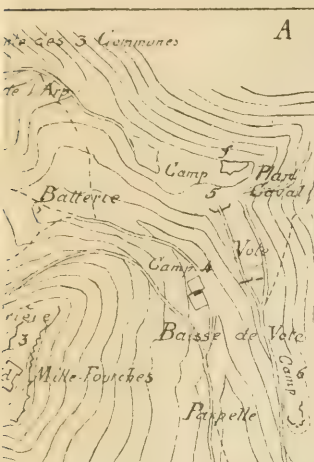 A
nte des 3 Communes
de l'Arp
Camp
4
Plan
Caval
5
Batterie
Vote
Camp 4
Baisse de Vote
3
Mille-Fourches
Camp
6
Parpelle